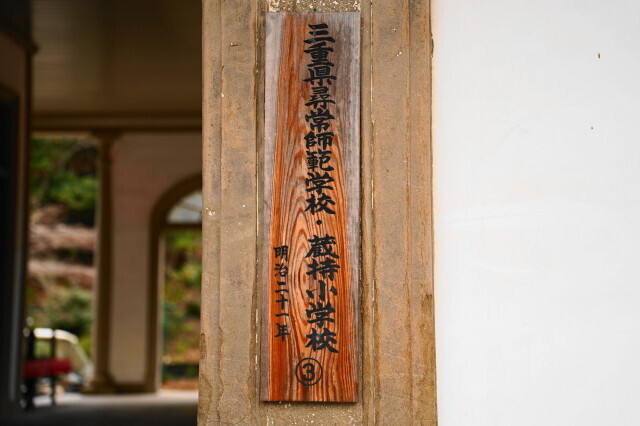 三重県尋常師範学校・蔵持小学校③
明治二十一年